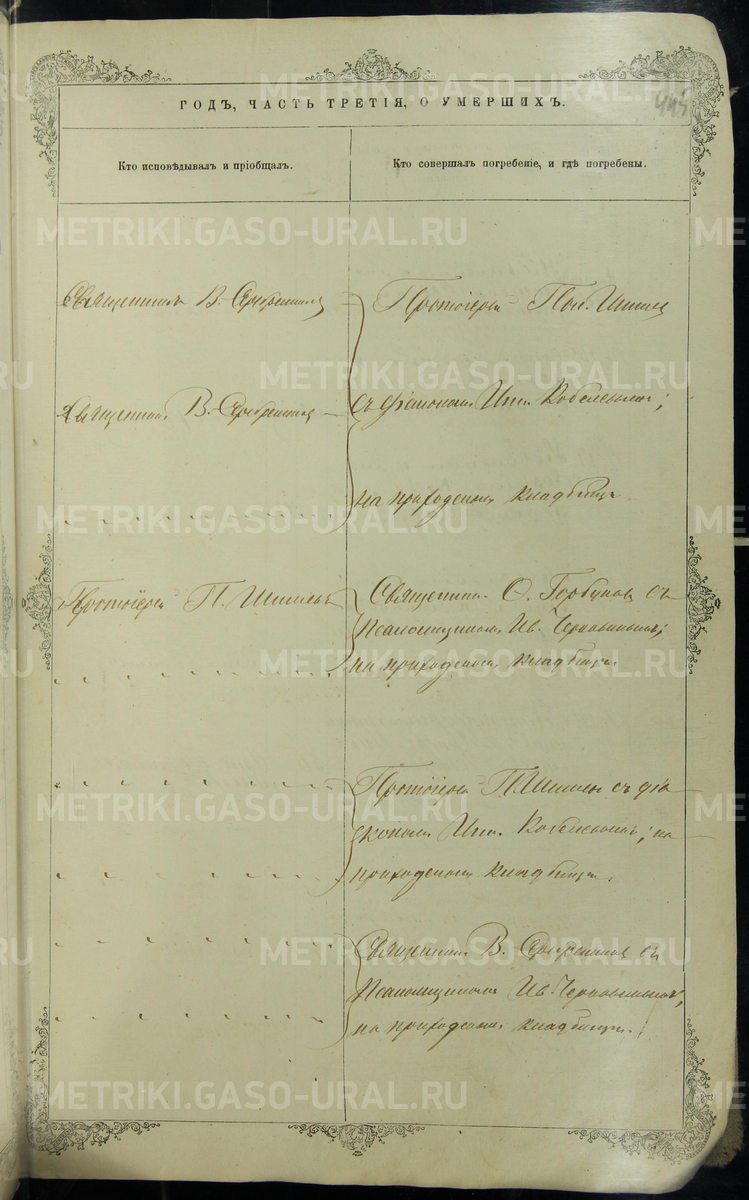 445
ГОДЪ, ЧАСТЬ ТРЕТІЯ, О УМЕРШИХЪ.
Кто исповѣдывалъ и пріобщалъ.
Кто совершалъ погребеніе, и гдѣ погребены.
Священникъ В. Серебренниковъ
Протоіерей Пол. Шишевъ
Священникъ В. Серебренниковъ
съ діакономъ Кобелевымъ;
на приходскомъ кладбищѣ
Протоіерей П. Шишевъ
Священникъ Ѳ. Горбуновъ съ
псаломщикомъ Ив. Черновымъ;
на приходскомъ кладбищѣ.
Протоіерей П. Шишевъ съ діа
кономъ Кобелевымъ; на
приходскомъ кладбищѣ.
Священникъ В. Серебренниковъ съ
псаломщикомъ Ив. Черновымъ;
на приходскомъ кладбищѣ.
METRIKI.GASO-URAL.RU